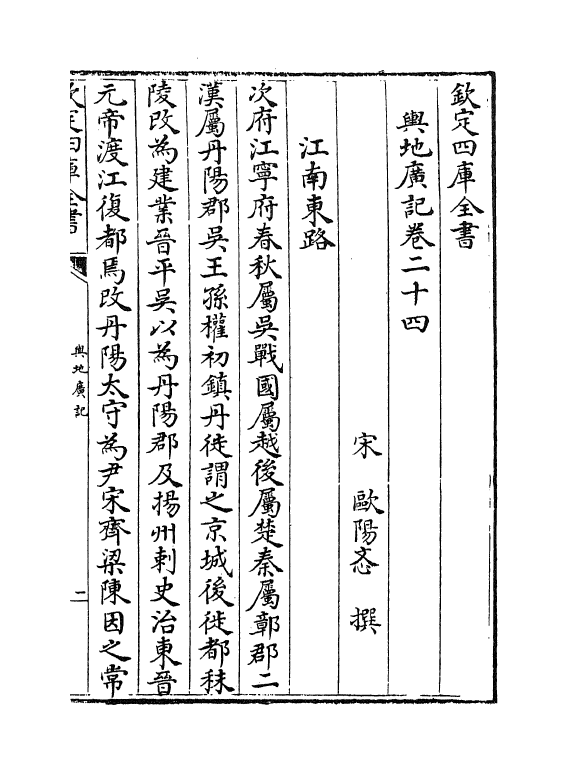 欽定四庫全書
輿地廣記卷二十四
宋 歐陽忞 撰
江南東路
次府江寧府春秋屬吳戰國屬越後屬楚秦屬鄣郡二
漢屬丹陽郡吳王孫權初鎮丹徒謂之京城後徙都秣
陵改為建業晉平吳以為丹陽郡及揚州刺史治東晉
元帝渡江復都焉改丹陽太守為尹宋齊梁陳因之常
欽定四庫全書
輿地廣記
二